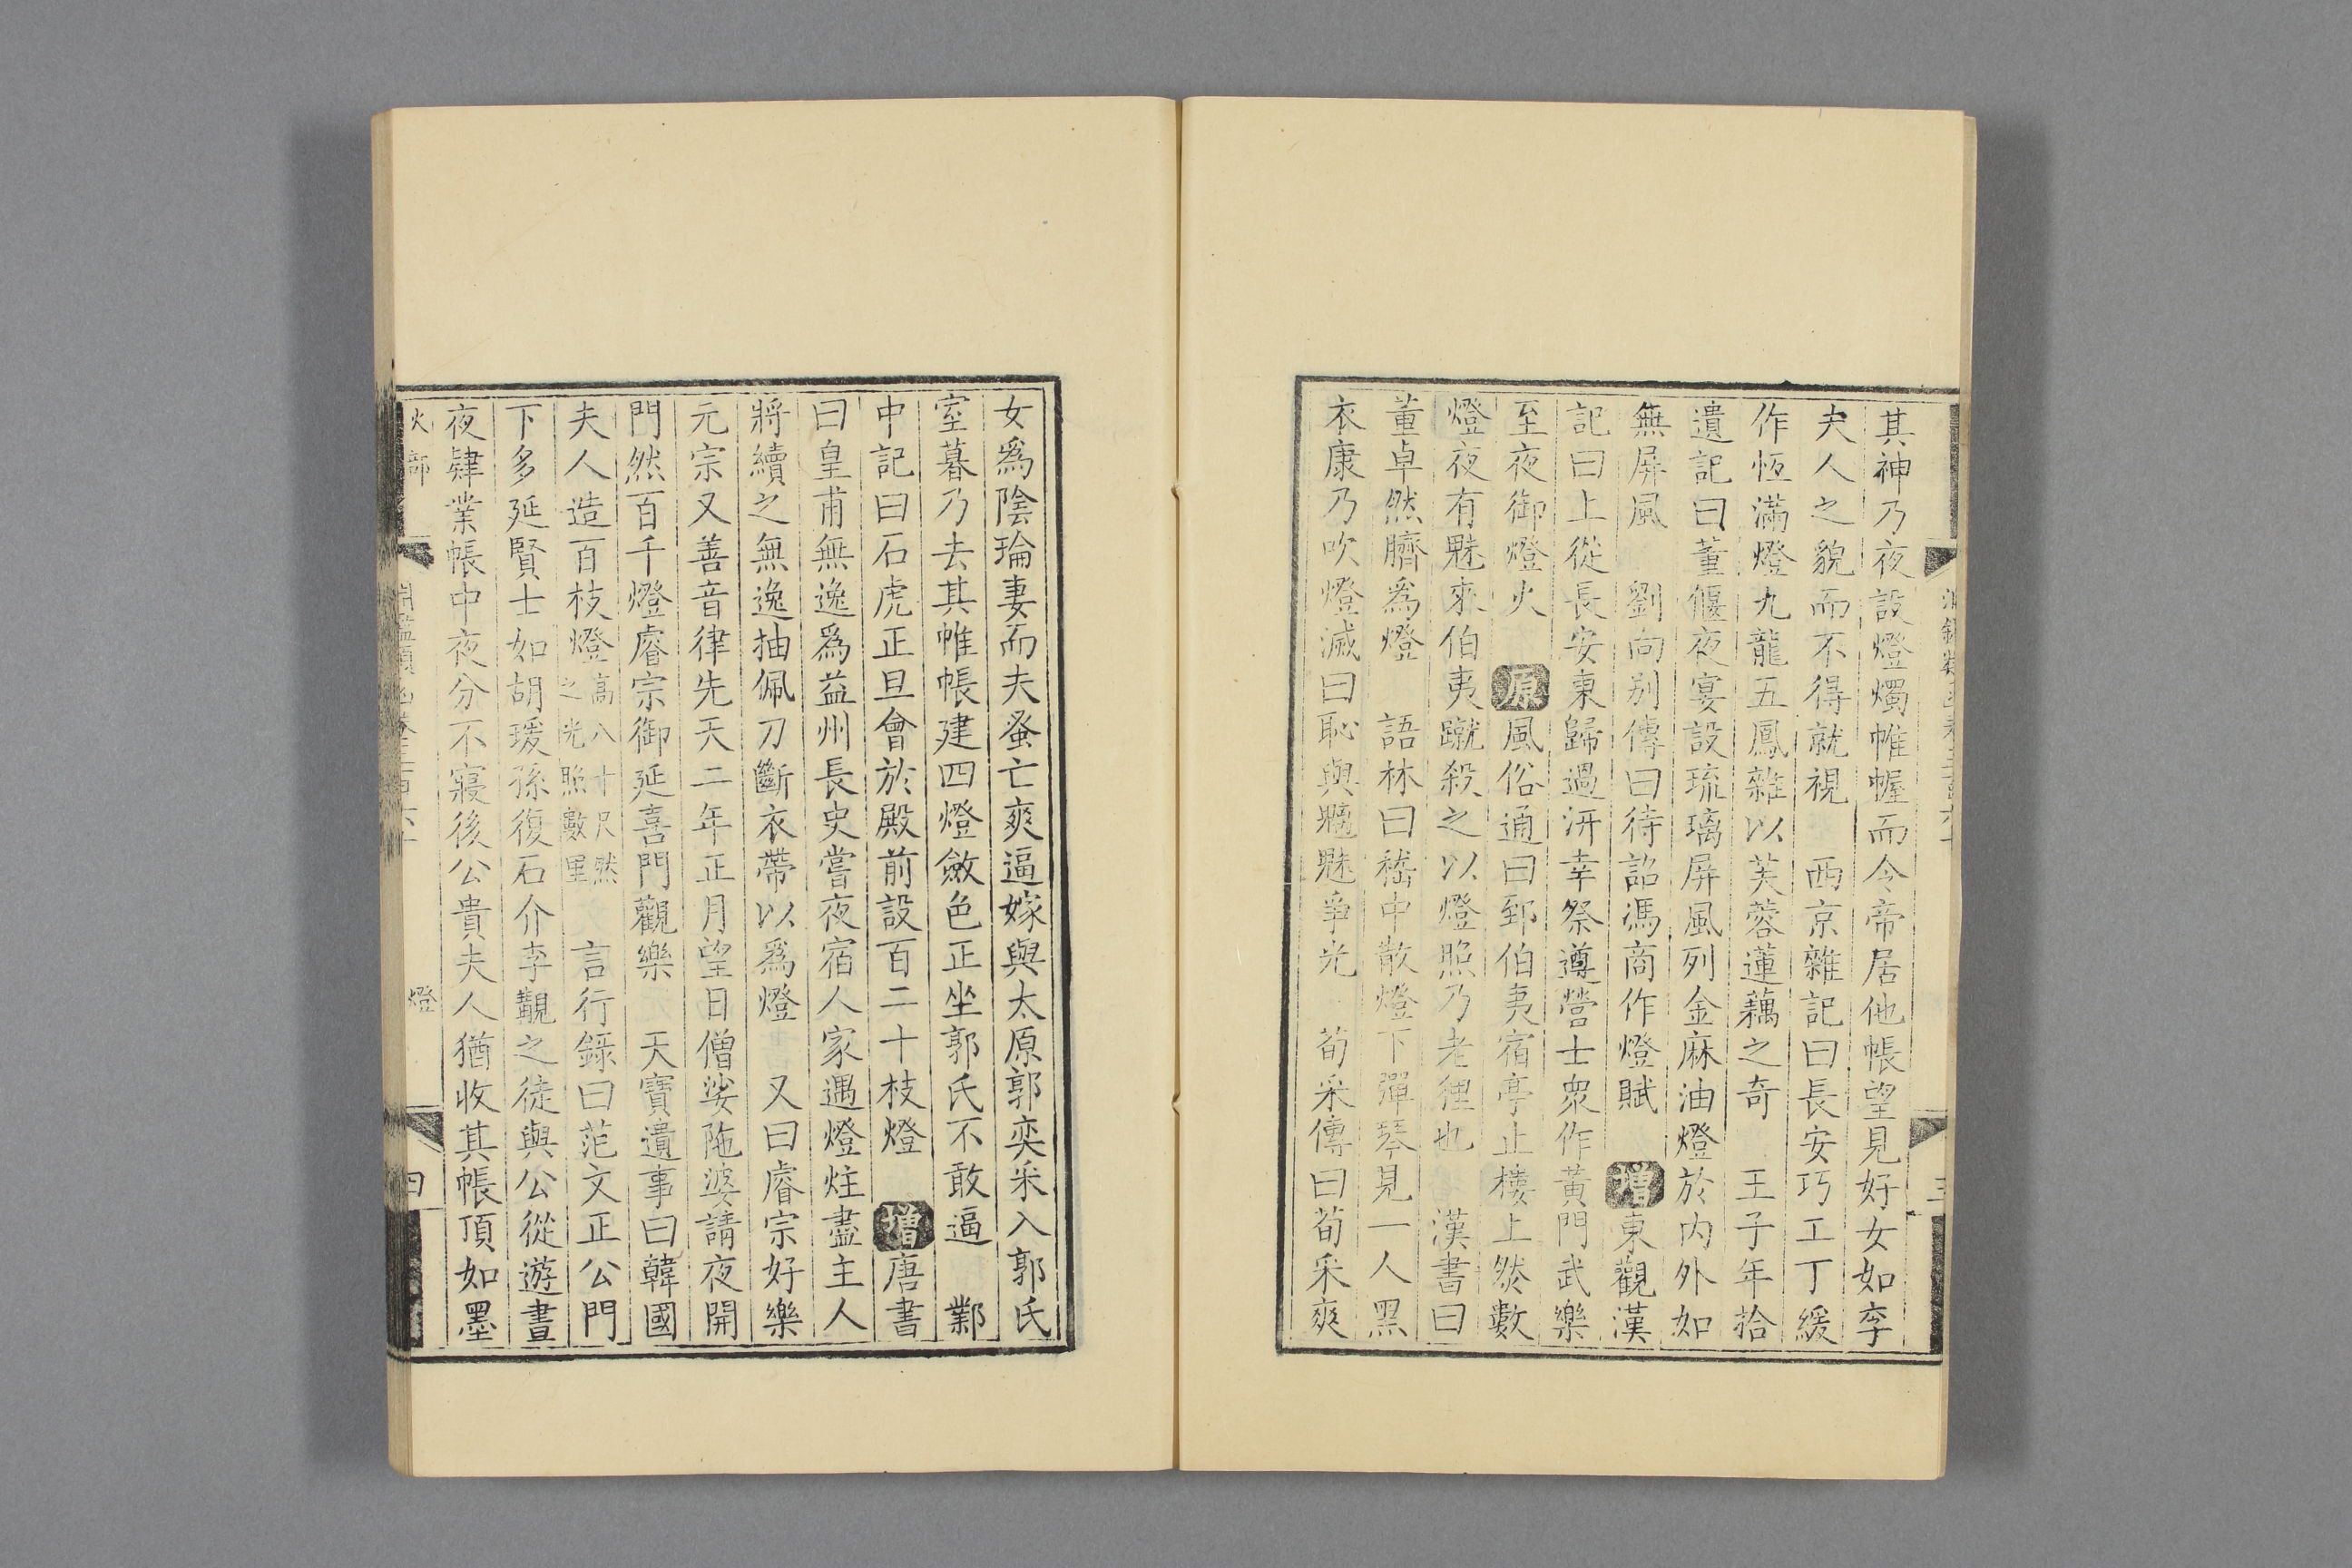 其神乃夜設燈燭帷幄而令帝居他帳望見好女如李
夫人之貌而不得就視　西京雜記曰長安巧工丁緩
作恆滿燈九龍五鳳雜以芙蓉蓮藕之奇　王子年拾
遺記曰董偃夜宴設琉璃屏風列金麻油燈於內外如
無屏風　劉向別傳曰待詔馮商作燈賦　增東觀漢
記曰上從長安東歸過汧幸祭遵營士衆作黃門武樂
至夜御燈火　原風俗通曰郅伯夷宿亭止樓上然數
燈夜有魅來伯夷蹴殺之以燈照乃老貍也　漢書曰
董卓然臍爲燈　語林曰嵇中散燈下彈琴見一人黑
衣康乃吹燈滅曰恥與魑魅爭光　荀采傳曰荀采爽
女爲陰瑜妻而夫蚤亡爽逼嫁與太原郭奕采入郭氏
室暮乃去其帷帳建四燈斂色正坐郭氏不敢逼　鄴
中記曰石虎正旦會於殿前設百二十枝燈　增唐書
曰皇甫無逸爲益州長史嘗夜宿人家遇燈炷盡主人
將續之無逸抽佩刀斷衣帶以爲燈　又曰睿宗好樂
元宗又善音律先天二年正月望日僧娑陁婆請夜開
門然百千燈睿宗御延喜門觀樂　天寶遺事曰韓國
夫人造百枝燈高八十尺然之光照數里　言行錄曰范文正公門
下多延賢士如胡瑗孫復石介李覯之徒與公從遊晝
夜肄業帳中夜分不寢後公貴夫人猶收其帳頂如墨
火部
燈
四